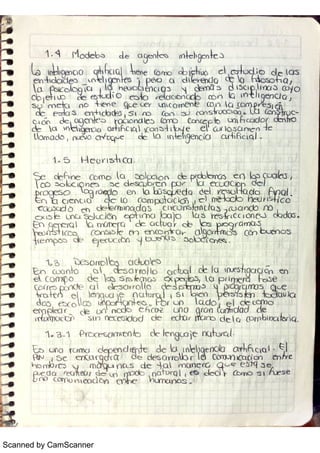 1.4 Modelos de agentes inteligentes
La inteligencia artificial tiene como objetivo el estudio de las
entidades inteligentes; pero a diferencia de la filosofía,
la psicología, la neurociencias y demas disciplinas cuyo
objetivo de estudio esta relacionado con la inteligencia,
su meta no tiene que ver unicamente con la compresion
de estas entidades, si no con su construccion. La construc-
ción de agentes racionales como concepto unificador dentro
de la inteligencia artificial constituye el
llamado, nuevo enfoque de la inteligencia artificial.
1.5 Heuristica.
Se define como la solucion de problemas en los cuales,
las soluciones se descubren por la
proceso logrado en la busqueda del resultado final.
En la ciencia de la computacion, el metodo heuristico
es usado en determinadas circunstancias, cuando no
existe una solución optima bajo las restricciones dadas.
En general la manera de actuar de los programas
heuristicos, consiste en encontrar algoritmos con buenos
tiempos de ejecucion y buenas soluciones.
Desarrollos actuales
En cuanto al desarrollo actual de la investigación en
el campo de los sistemas expertos, la primera fase
corresponde al desarrollo de sistemas y programas que
traten el lenguaje natural, si bien persisten todavia
dos escollos importantes. Por un lado, el de como
emplear de un modo eficaz una gran cantidad de
información sin necesidad de echar mano de la combinatoria.
Procesamiento de lenguaje natural.
Es una rama dependiente de la inteligencia artificial. El
PLN, se encargaría de desarrollar la comunicacion entre
hombres y maquinas de tal manera que esta se
pueda realizar de un modo natural, es decir como si fuese
una comunicacion entre humanos.
Scanned by CamScanner